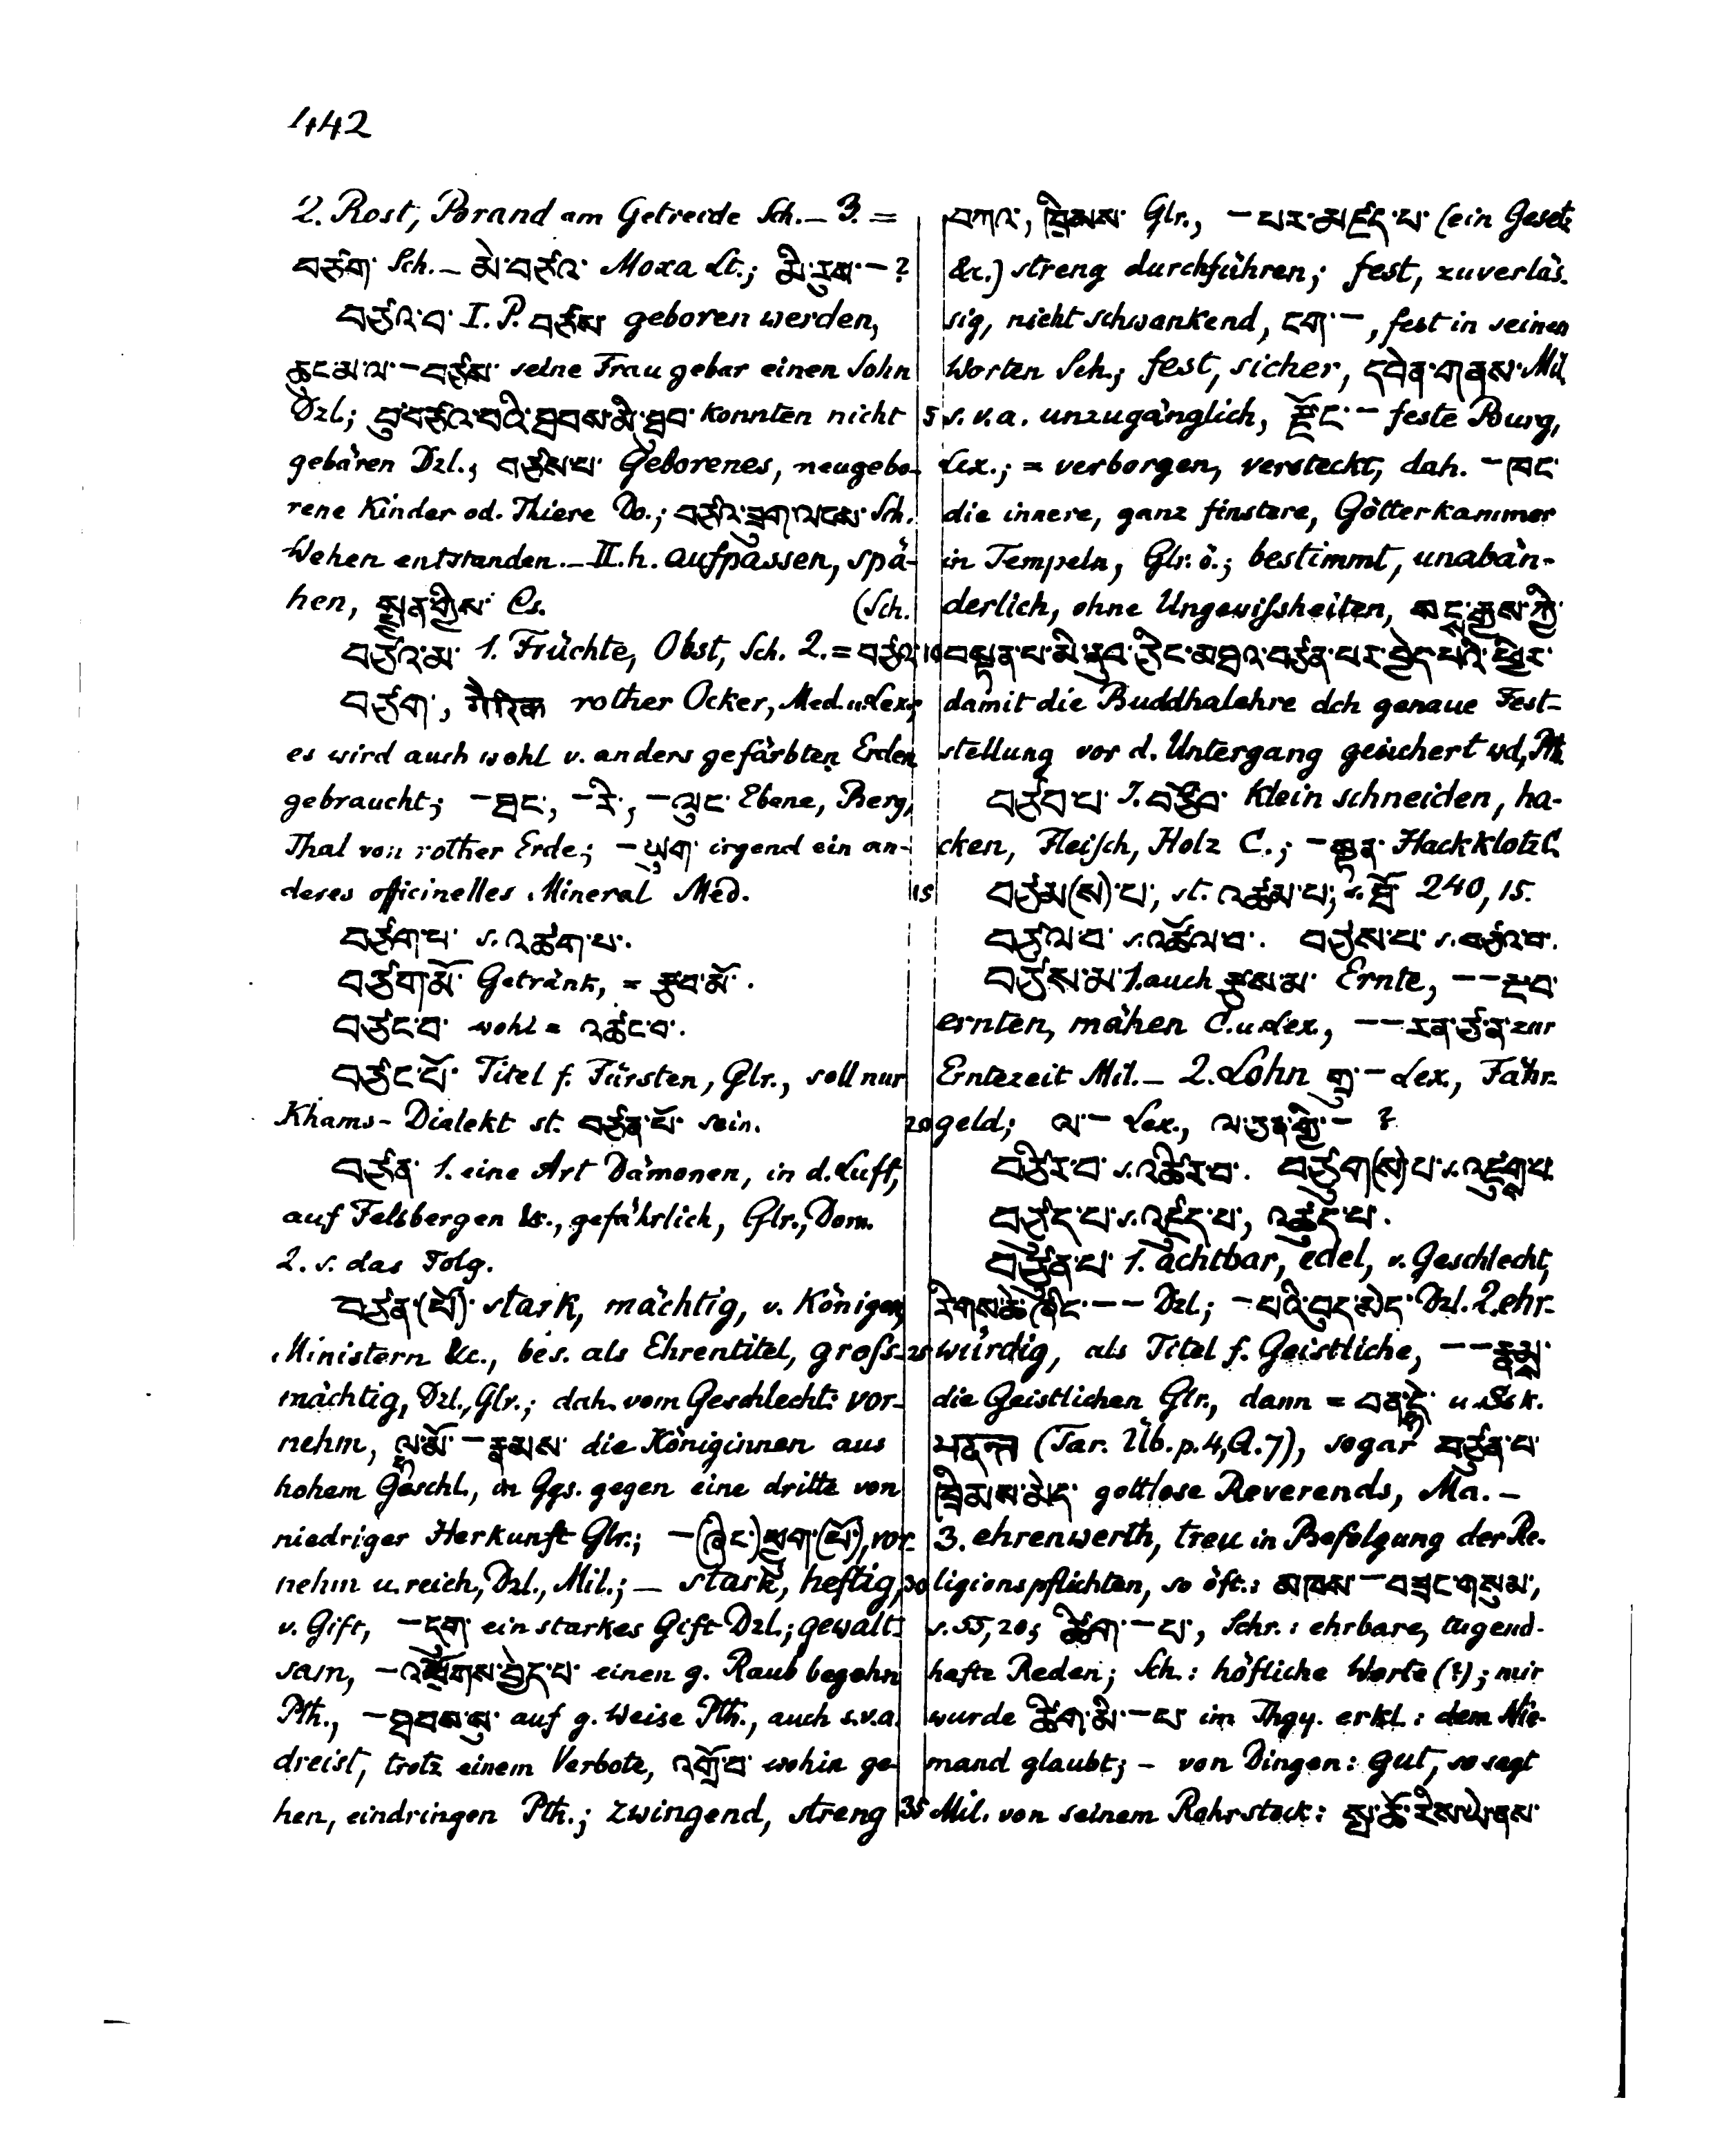 442
2. Rost, Brand am Getreide Sch. – 3. =
བཙག་ Sch. – མེ་བཙའ་ Moxa Lt.; མི་རུས་ – ?
བཙའ་བ་ I. P. བཙས་ geboren werden,
ཆུང་མ་ལ་ – བཙས་ seine Frau gebar einen Sohn
Dzl; བུ་བཙའ་བའི་ཐབས་མི་ཐུབ་ konnten nicht
gebären Dzl.; བཙས་པ་ Geborenes, neugebo-
rene Kinder od. Thiere Do.; བཙའ་ཟུག་ལངས་ Sch.
Wehen entstanden. – II. h. aufpassen, spä-
hen, སྤྱན་གྱིས་ Cs. (Sch.
བཙའ་མ་ 1. Früchte, Obst, Sch. 2. = བཙའ་
བཙག་, गैरिक rother Ocker, Med. u. Lex.;
es wird auch wohl v. anders gefärbten Erden
gebraucht; – ཐང་, – རི་, – ལུང་ Ebene, Berg,
Thal von rother Erde; – ཡུག་ irgend ein an-
deres officinelles Mineral Med.
བཙག་པ་ s. འཚག་པ་.
བཙག་མོ་ Getränk, = རྩབ་མོ་.
བཙང་བ་ wohl = འཚང་བ་.
བཙང་པོ་ Titel f. Fürsten, Glr., soll nur
Khams-Dialekt st. བཙན་པོ་ sein.
བཙན་ 1. eine Art Dämonen, in d. Luft,
auf Felsbergen &c., gefährlich, Glr., Dom.
2. s. das Folg.
བཙན་(པོ)་ stark, mächtig, v. Königen,
Ministern &c., bes. als Ehrentitel, gross-
mächtig, Dzl., Glr.; dah. vom Geschlecht: vor-
nehm, ལྷ་མོ་ – རྣམས་ die Königinnen aus
hohem Geschl., in Ggs. gegen eine dritte von
niedriger Herkunft Glr.; – (ཞིང་)ཕྱུག་(པོ), vor-
nehm u. reich, Dzl., Mil.; – stark, heftig,
v. Gift, – དུག་ ein starkes Gift Dzl.; gewalt-
sam, – འཕྲོགས་བྱེད་པ་ einen g. Raub begehn
Pth., – ཐབས་སུ་ auf g. Weise Pth., auch s.v.a.
dreist, trotz einem Verbote, འགྲོ་བ་ wohin ge-
hen, eindringen Pth.; zwingend, streng
བཀའ་, ཁྲིམས་ Glr., – པར་མཛད་པ་ (ein Gesetz
&c.) streng durchführen; fest, zuverläs-
sig, nicht schwankend, ངག་ –, fest in seinen
Worten Sch.; fest, sicher, དབེན་གནས་ Mil.
5 s. v. a. unzugänglich, རྫོང་ – feste Burg,
Lex.; = verborgen, versteckt, dah. – ཁང་
die innere, ganz finstere, Götterkammer
in Tempeln, Glr. ö.; bestimmt, unabän-
derlich, ohne Ungewissheiten, སངྶ་རྒྱས་ཀྱི་
10 བསྟན་པ་མི་ནུབ་ཅིང་མཐའ་བཙན་པར་བྱེད་པའི་ཕྱིར་
damit die Buddhalehre dch genaue Fest-
stellung vor d. Untergang gesichert wd, Pth.
བཙབ་པ་ I. བཙབ་ klein schneiden, ha-
cken, Fleisch, Holz C.; – སྟན་ Hackklotz C.
15 བཙམ(ས)་པ་, st. འཚམ་པ་; s. ཐོ་ 240, 15.
བཙལ་བ་ s. འཚོལ་བ་. བཙས་པ་ s. བཙའ་བ་.
བཙས་མ་ 1. auch རྩས་མ་ Ernte, – – རྔབ་
ernten, mähen C. u. Lex., – – རན་ཙ་ན་ zur
Erntezeit Mil. – 2. Lohn གྲུ་ – Lex., Fähr-
20 geld; ལ་ – Lex., ལ་ཤན་གྱི་ – ?
བཙིར་བ་ s. འཚིར་བ་. བཙུག(ས)་པ་ s. འཛུགས་པ་
བཙུད་པ་ s. འཛུད་པ་, འཚུད་པ་.
བཙུན་པ་ 1. achtbar, edel, v. Geschlecht,
རིགས་ཆེ་ཞིང་ – – Dzl.; – པའི་བུད་མེད་ Dzl. 2. ehr-
25 würdig, als Titel f. Geistliche, – – རྣམས་
die Geistlichen Glr., dann = བན་དྷེ་ u. Ssk.
भदन्त (Tar. Üb. p. 4, A. 7), sogar བཙུན་པ་
ཁྲིམས་མེད་ gottlose Reverends, Ma. –
3. ehrenwerth, treu in Befolgung der Re-
30 ligionspflichten, so öft.: མཁས་ – བཟང་གསུམ་,
s. 55, 20; ཚིག་ – པ་, Schr.: ehrbare, tugend-
hafte Reden; Sch.: höfliche Worte (?); mir
wurde ཚིག་མི་ – པ་ im Thgy. erkl.: dem Nie-
mand glaubt; – von Dingen: gut, so sagt
35 Mil. von seinem Rohrstock: